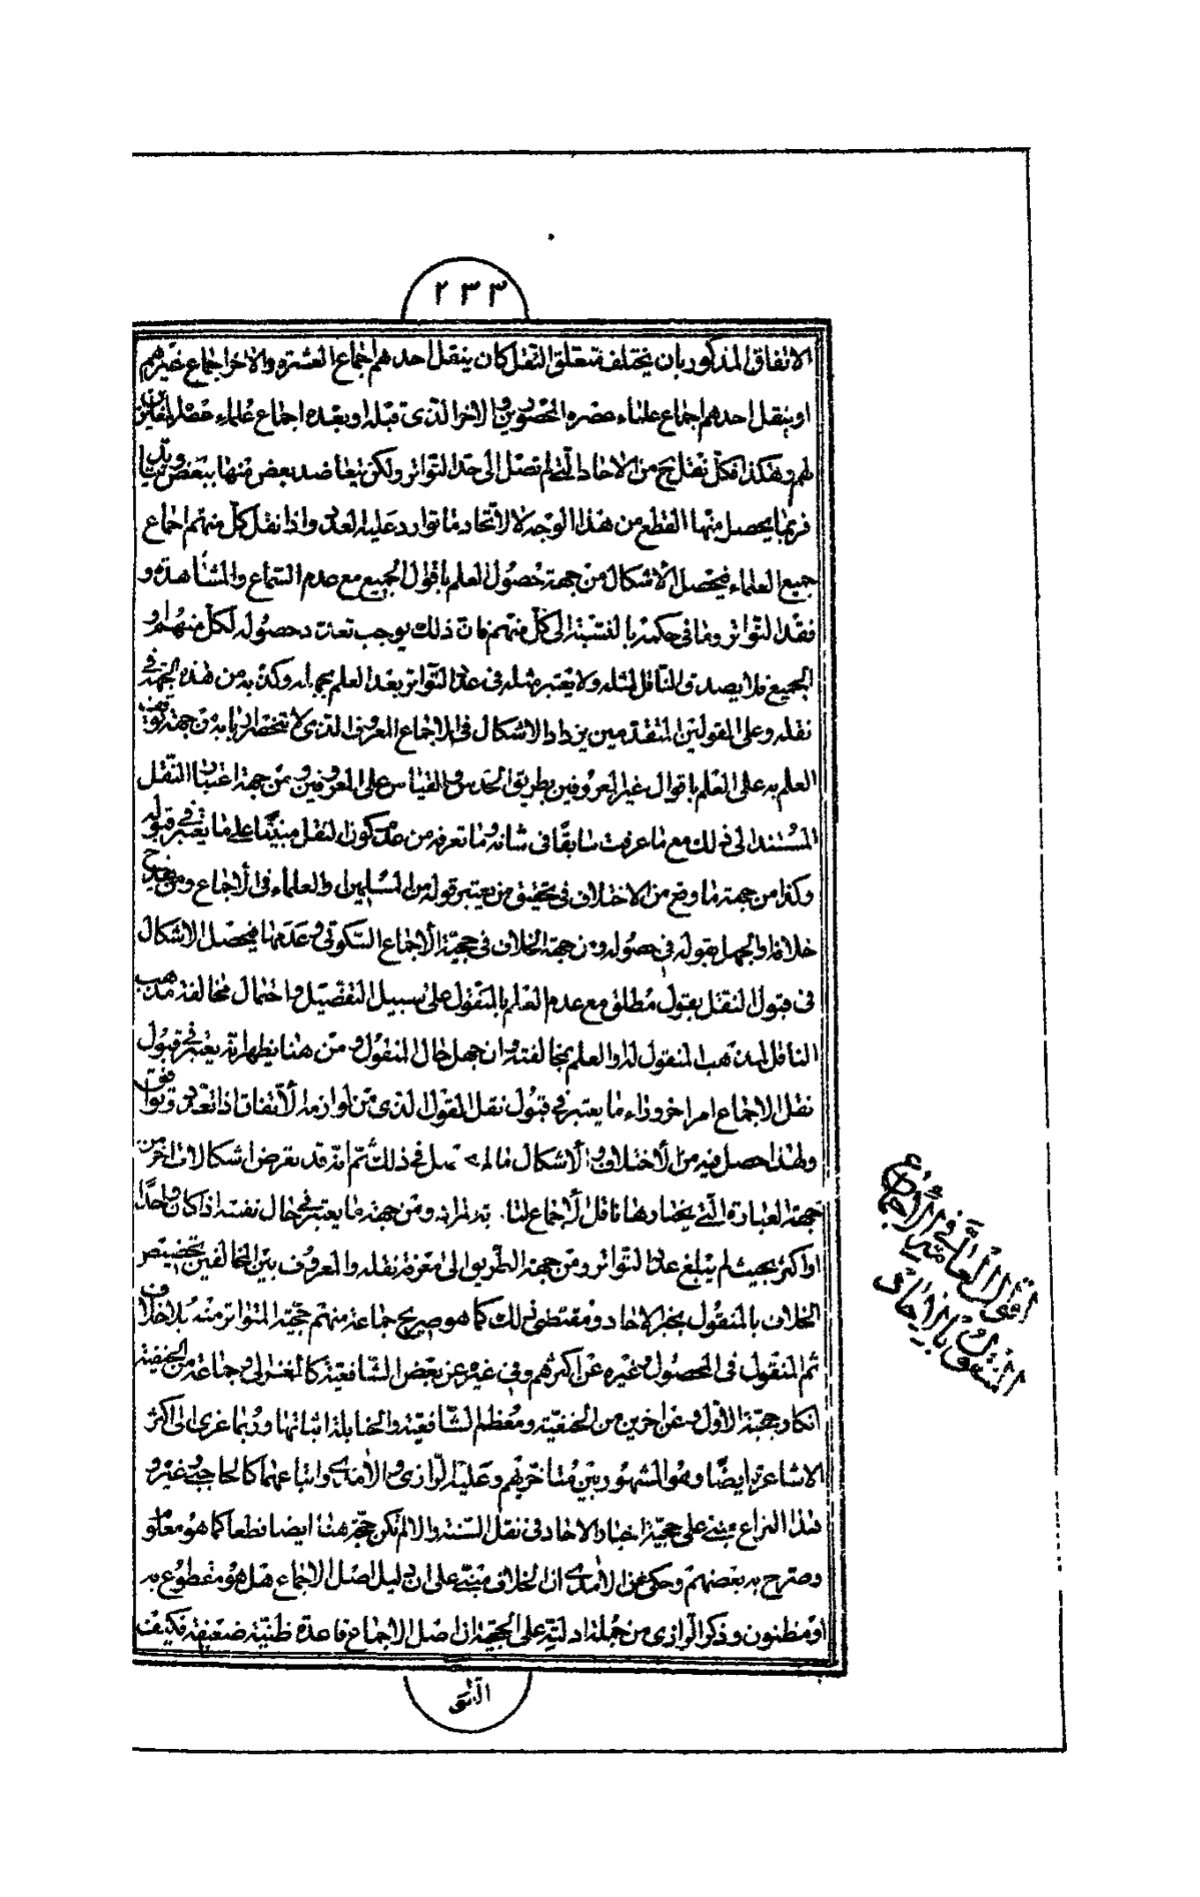 ٢٣٣
الاتفاق المذكور بان يختلف متعلق النقل كان ينقل احدهم اجماع العشرة والاخر اجماع غيرهم
او ينقل احدهم اجماع علماء عصره المخصوصين والاخر الذى قبله او بعده اجماع علماء عصر المغايرين
لهم وهكذا فكل نقل من الاحاد التى لم تصل الى حد التواتر ولكن يتعاضد بعض منها ببعض
فربما يحصل منها القطع من هذا الوجه لا لاتحاد ما توارد عليه العدد واذا نقل كل منهم اجماع
جميع العلماء فيحصل الاشكال من جهة حصول العلم باقوال الجميع مع عدم السماع والمشاهدة و
فقد التواتر وما فى حكمه بالنسبة الى كل منهم فان ذلك يوجب تعذر حصوله لكل منهم او
الجميع فلا يصدق الناقل لمثله ولا يعتبر مثله فى عدد التواتر بعد العلم بحاله وكذبه من هذه الجهة فى
نقله وعلى القولين المتقدمين يزداد الاشكال فى الاجماع المعروف الذى لا تنحصر اربابه من جهة توقف
العلم به على العلم باقوال غير المعروفين بطريق الحدس والقياس على المعروفين ومن جهة اعتبار النقل
المستند الى ذلك مع ما عرفت سابقًا فى شانه وما تعرفه من عدم كون النقل مبنيًا على ما يعتبر فى قبوله
وكذا من جهة ما وقع من الاختلاف فى تحقيق من يعتبر قوله من المسلمين والعلماء فى الاجماع ومن يقدح
خلافه او الجهل بقوله فى حصوله ومن جهة الخلاف فى حجية الاجماع السكوتى وعدمها فيحصل الاشكال
فى قبول النقل بقول مطلق مع عدم العلم بالمنقول على سبيل التفصيل واحتمال مخالفة مذهب
الناقل لمذهب المنقول له او العلم بمخالفته وان جهل حال المنقول ومن هنا يظهر انه يعتبر فى قبول
نقل الاجماع امر اخر وراء ما يعتبر فى قبول نقل القول الذى من لوازمه الاتفاق اذا تعدد وتوافق
ولهذا حصل فيه من الاختلاف والاشكال ما لم يحصل فى ذلك ثم انه قد يعرض اشكالات اخر من
جهة العبارة التى يختارها ناقل الاجماع ومن جهة ما يعتبر فى حال نفسه اذا كان واحدًا
او اكثر بحيث لم يبلغ عدد التواتر ومن جهة الطريق الى معرفة نقله والمعروف بين المخالفين تخصيص
الخلاف بالمنقول بخبر الاحاد ومقتضى ذلك كما هو صريح جماعة منهم حجية المتواتر منه بلا خلاف
ثم المنقول فى المحصول وغيره عن اكثرهم وفى غيره عن بعض الشافعية كالغزالى وجماعة من الحنفية
انكار حجية الاول وعن اخرين من الحنفية ومعظم الشافعية والحنابلة اثباتها وربما عزى الى اكثر
الاشاعرة ايضًا وهو المشهور بين متاخريهم وعليه الرازى والامدى واتباعهما كالحاجبى وغيره و
هذا النزاع مبنى على حجية اخبار الاحاد فى نقل السنة والا لم تكن حجة هنا ايضا قطعا كما هو معلوم و
وصرح به بعضهم وحكى عن الامدى ان الخلاف مبنى على ان دليل اصل الاجماع هل هو مقطوع به
او مظنون وذكر الرازى من جملة ادلته على الحجية ان اصل الاجماع قاعدة ظنية ضعيفة فكيف
القول
اقوال العامة فى الاجماع
المنقول بالاحاد